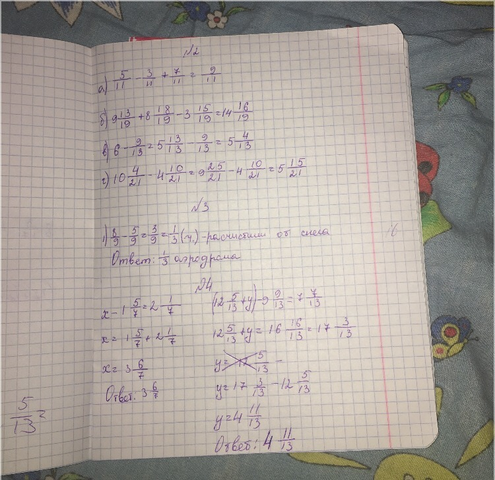 №2
а) 5/11 - 3/11 + 7/11 = 9/11
б) 9 13/19 + 8 18/19 - 3 15/19 = 14 16/19
в) 6 - 9/13 = 5 13/13 - 9/13 = 5 4/13
г) 10 4/21 - 4 10/21 = 9 25/21 - 4 10/21 = 5 15/21
№3
1) 8/9 - 5/9 = 3/9 = 1/3 (ч.) - расчистили от снега
Ответ: 1/3 аэродрома
№4
x - 1 5/7 = 2 1/7
x = 1 5/7 + 2 1/7
x = 3 6/7
Ответ: 3 6/7
(12 5/13 + y) - 9 9/13 = 7 7/13
12 5/13 + y = 16 16/13 = 17 3/13
y = 5/13 -
y = 17 3/13 - 12 5/13
y = 4 11/13
Ответ: 4 11/13
5/13 =